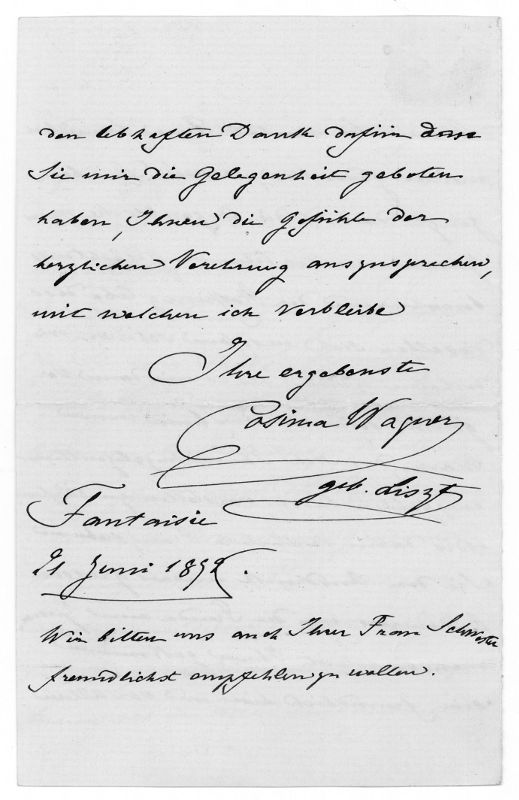 den lebhaften Dank dafür dass
Sie mir die Gelegenheit geboten
haben, Ihnen die Gefühle der
herzlichen Verehrung auszusprechen,
mit welchen ich verbleibe
Ihre ergebenste
Cosima Wagner
geb. Liszt
Fantaisie
21 Juni 1872.
Wir bitten uns auch Ihrer Frau Schwester
freundlichst empfehlen zu wollen.